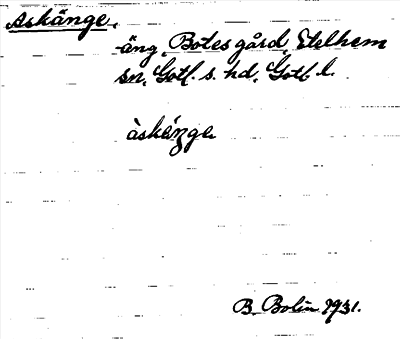 Askänge.
äng, Botes gård, Etelhem
sn, Gotl. s. hd, Gotl. l.
àskä́nge
B. Bolin 1931.